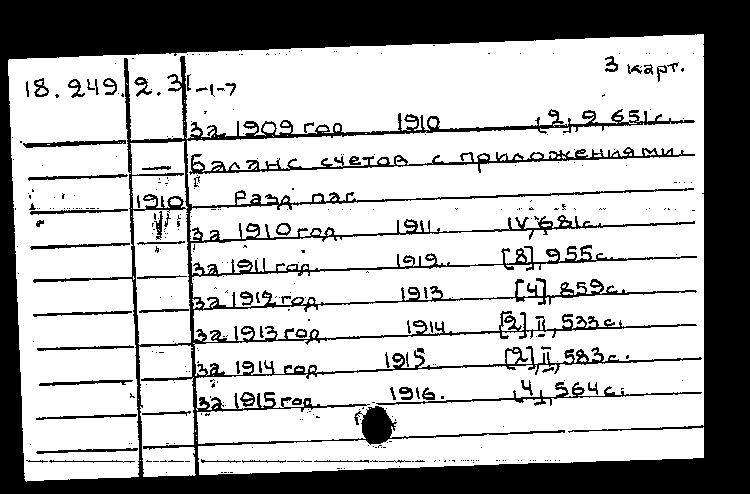 3 карт.
18.249.2.31-1-7
за 1909 год 1910 [2], 2, 651 с.
— Баланс счетов с приложениями.
1910 Разд. паг.
за 1910 год. 1911. IV, 681 с.
за 1911 год. 1912. [8], 955 с.
за 1912 год. 1913 [4], 859 с.
за 1913 год. 1914. [2], II, 533 с.
за 1914 год. 1915. [2], II, 583 с.
за 1915 год. 1916. [4], 564 с.